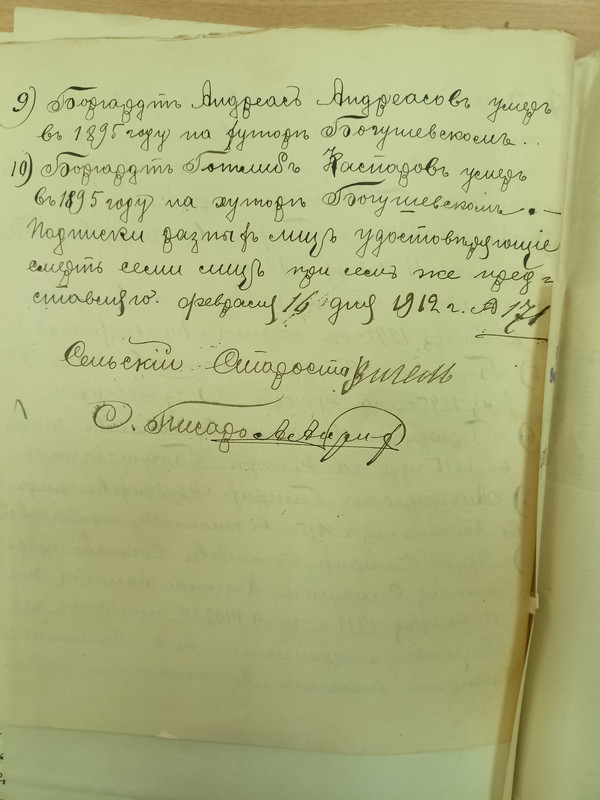 9) Боргардтъ Андреасъ Андреасовъ умеръ
въ 1895 году на хуторѣ Богушевскомъ..
10) Боргардтъ Готлибъ Каспаровъ умеръ
въ 1895 году на хуторѣ Богушевскомъ.—
Подписки разныхъ лицъ удостовѣряющіе
смерть семи лицъ при семъ же пред=
ставляю. февраля 16 дня 1912 г. № 171
Сельскій Староста
С. Писарь